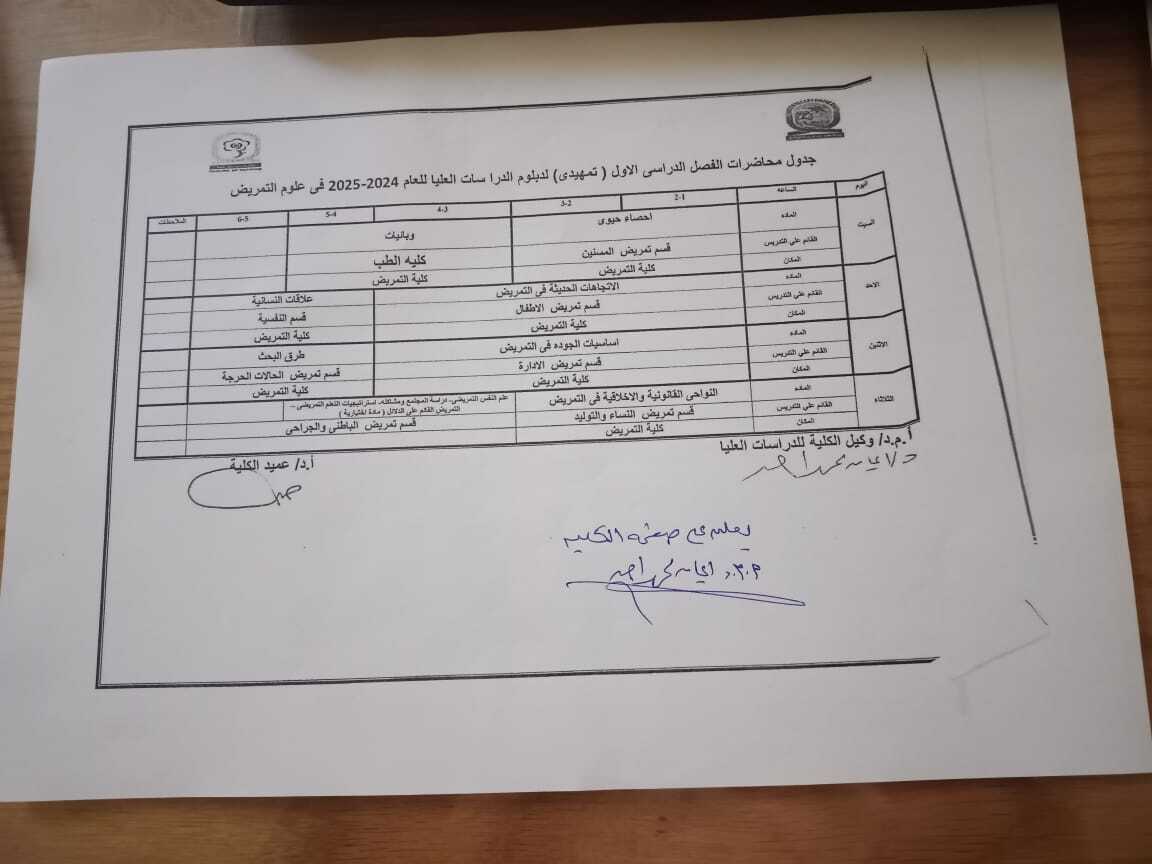 جدول محاضرات الفصل الدراسى الاول ( تمهيدى) لدبلوم الدرا سات العليا للعام 2024-2025 فى علوم التمريض
اليوم الساعه 2-1 3-2 4-3 5-4 6-5 الملاحظات
السبت الماده احصاء حيوى وبائيات
القائم علي التدريس قسم تمريض المسنين كليه الطب
المكان كلية التمريض كلية التمريض
الاحد الماده الاتجاهات الحديثة فى التمريض علاقات انسانية
القائم علي التدريس قسم تمريض الاطفال قسم النفسية
المكان كلية التمريض كلية التمريض
الاثنين الماده اساسيات الجوده فى التمريض طرق البحث
القائم علي التدريس قسم تمريض الادارة قسم تمريض الحالات الحرجة
المكان كلية التمريض كلية التمريض
الثلاثاء الماده النواحى القانونية والاخلاقية فى التمريض علم النفس التمريضى- دراسة المجتمع ومشاكله- استراتيجيات التعلم التمريضى – التمريض القائم علي الدلائل ( مادة اختيارية )
القائم علي التدريس قسم تمريض النساء والتوليد قسم تمريض الباطنى والجراحى
المكان كلية التمريض
أ.م.د/ وكيل الكلية للدراسات العليا
أ.د/ عميد الكلية
يعلن على صفحة الكلية